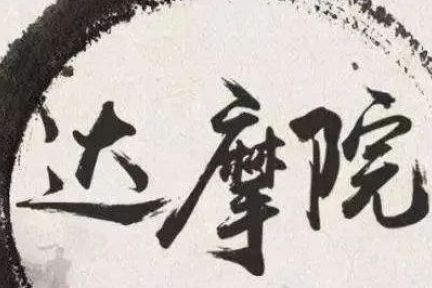 达摩院